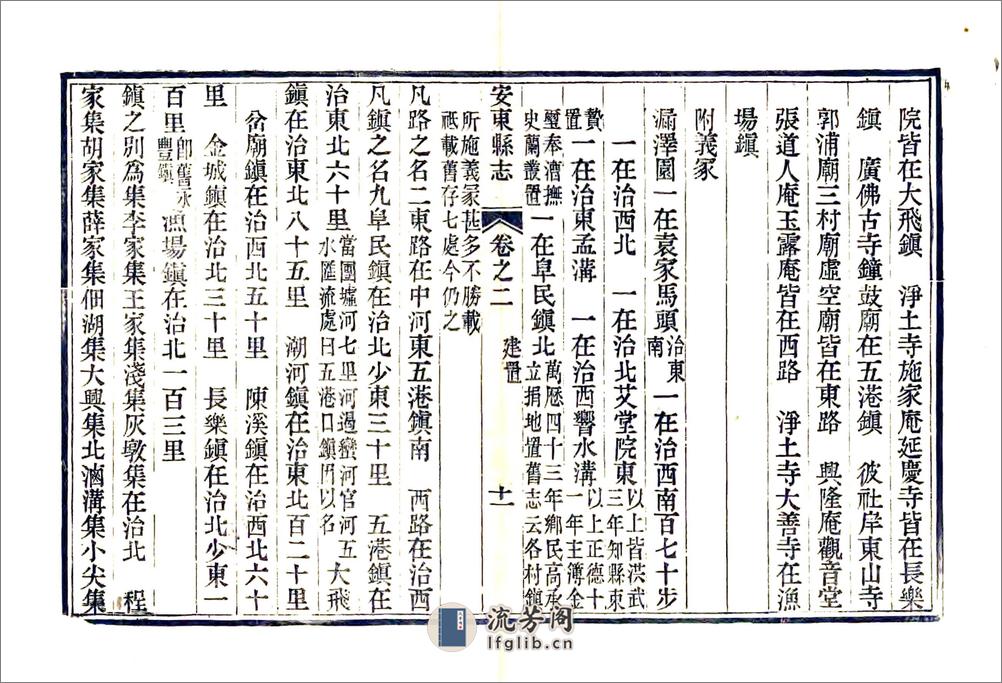 院皆在大飛鎮　淨土寺施家庵延慶寺皆在長樂
鎮　廣佛古寺鐘鼓廟在五港鎮　彼社岸東山寺
郭浦廟三村廟虛空廟皆在東路　興隆庵觀音堂
張道人庵玉露庵皆在西路　淨土寺大善寺在漁
場鎮
附義冢
漏澤園一在袁家馬頭治東南一在治西南百七十步
一在治西北　一在治北艾堂院東以上皆洪武三年知縣東
贊置一在治東孟溝　一在治西響水溝以上正德十一年主簿金
璧奉漕撫史蘭叢置一在阜民鎮北萬歷四十三年鄉民高承立捐地置舊志云各村鎮
所施義冢甚多不勝載
祗載舊存七處今仍之
凡路之名二東路在中河東五港鎮南　西路在治西
凡鎮之名九阜民鎮在治北少東三十里　五港鎮在
治東北六十里當團墟河七里河過蠻河官河五大飛水匯流處曰五港口鎮所以名
鎮在治東北八十五里　潮河鎮在治東北百二十里
岔廟鎮在治西北五十里　陳溪鎮在治西北六十
里　金城鎮在治北三十里　長樂鎮在治北少東一
百里即舊永豐鎮漁場鎮在治北一百三里
鎮之別爲集李家集王家集淺集灰墩集在治北　程
家集胡家集薛家集佃湖集大興集北滷溝集小尖集
安東縣志
卷之二
建置
十一
流芳阁
lfglib.cn